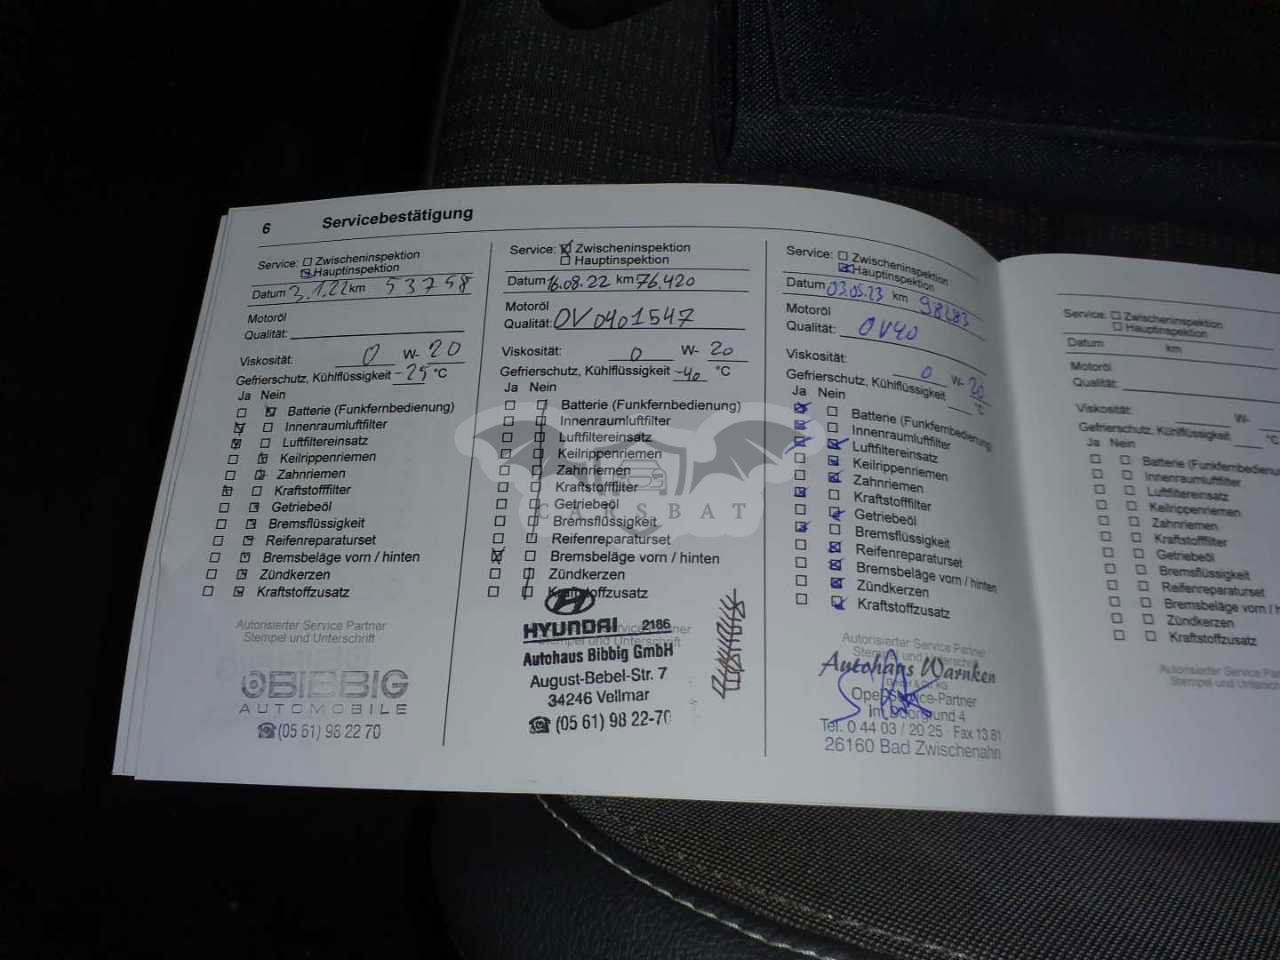 6 Servicebestätigung
Service: Zwischeninspektion
Hauptinspektion
Datum 3.1.22 km 53758
Motoröl
Qualität:
Viskosität: 0 W- 20
Gefrierschutz, Kühlflüssigkeit -25 °C
Ja Nein
Batterie (Funkfernbedienung)
Innenraumluftfilter
Luftfiltereinsatz
Keilrippenriemen
Zahnriemen
Kraftstofffilter
Getriebeöl
Bremsflüssigkeit
Reifenreparaturset
Bremsbeläge vorn / hinten
Zündkerzen
Kraftstoffzusatz
Autorisierter Service Partner
Stempel und Unterschrift
BIBBIG
AUTOMOBILE
☎(05 61) 98 22 70
Service: Zwischeninspektion
Hauptinspektion
Datum 16.08.22 km 76,420
Motoröl
Qualität: OV0401547
Viskosität: 0 W- 20
Gefrierschutz, Kühlflüssigkeit -40 °C
Ja Nein
Batterie (Funkfernbedienung)
Innenraumluftfilter
Luftfiltereinsatz
Keilrippenriemen
Zahnriemen
Kraftstofffilter
Getriebeöl
Bremsflüssigkeit
Reifenreparaturset
Bremsbeläge vorn / hinten
Zündkerzen
Kraftstoffzusatz
HYUNDAI 2186
Stempel und Unterschrift
Autohaus Bibbig GmbH
August-Bebel-Str. 7
34246 Vellmar
☎ (05 61) 98 22-70
Service: Zwischeninspektion
Hauptinspektion
Datum 03.05.23 km 98283
Motoröl
Qualität: OV40
Viskosität: 0 W- 20
Gefrierschutz, Kühlflüssigkeit °C
Ja Nein
Batterie (Funkfernbedienung)
Innenraumluftfilter
Luftfiltereinsatz
Keilrippenriemen
Zahnriemen
Kraftstofffilter
Getriebeöl
Bremsflüssigkeit
Reifenreparaturset
Bremsbeläge vorn / hinten
Zündkerzen
Kraftstoffzusatz
Autorisierter Service Partner
Autohaus Warnken
Opel Service-Partner
Tel. 0 44 03 / 20 25 · Fax 13 81
26160 Bad Zwischenahn
Service: Zwischeninspektion
Hauptinspektion
Datum km
Motoröl
Qualität:
Viskosität: W-
Gefrierschutz, Kühlflüssigkeit °C
Ja Nein
Batterie (Funkfernbedienu
Innenraumluftfilter
Luftfiltereinsatz
Keilrippenriemen
Zahnriemen
Kraftstofffilter
Getriebeöl
Bremsflüssigkeit
Reifenreparaturset
Bremsbeläge vorn / h
Zündkerzen
Kraftstoffzusatz
Autorisierter Service Partne
Stempel und Unters
CARSBAT